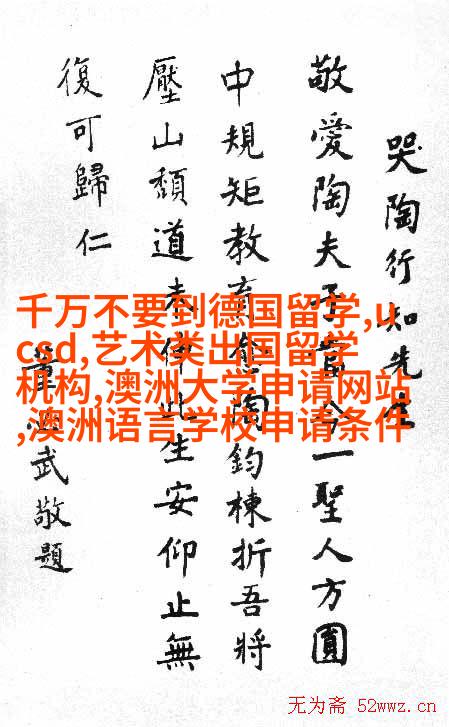 哭陶行知先生
敬愛陶夫子當今一聖人方圓
中規矩教育愈陶鈞棟折吾將
壓山頹道未伸此生安仰止無
復可歸仁
董必武敬題
千万不要到德国留学,u
csd,艺术类出国留学
机构,澳洲大学申请网站
,澳洲语言学校申请条件
无为斋 52wwz.cn